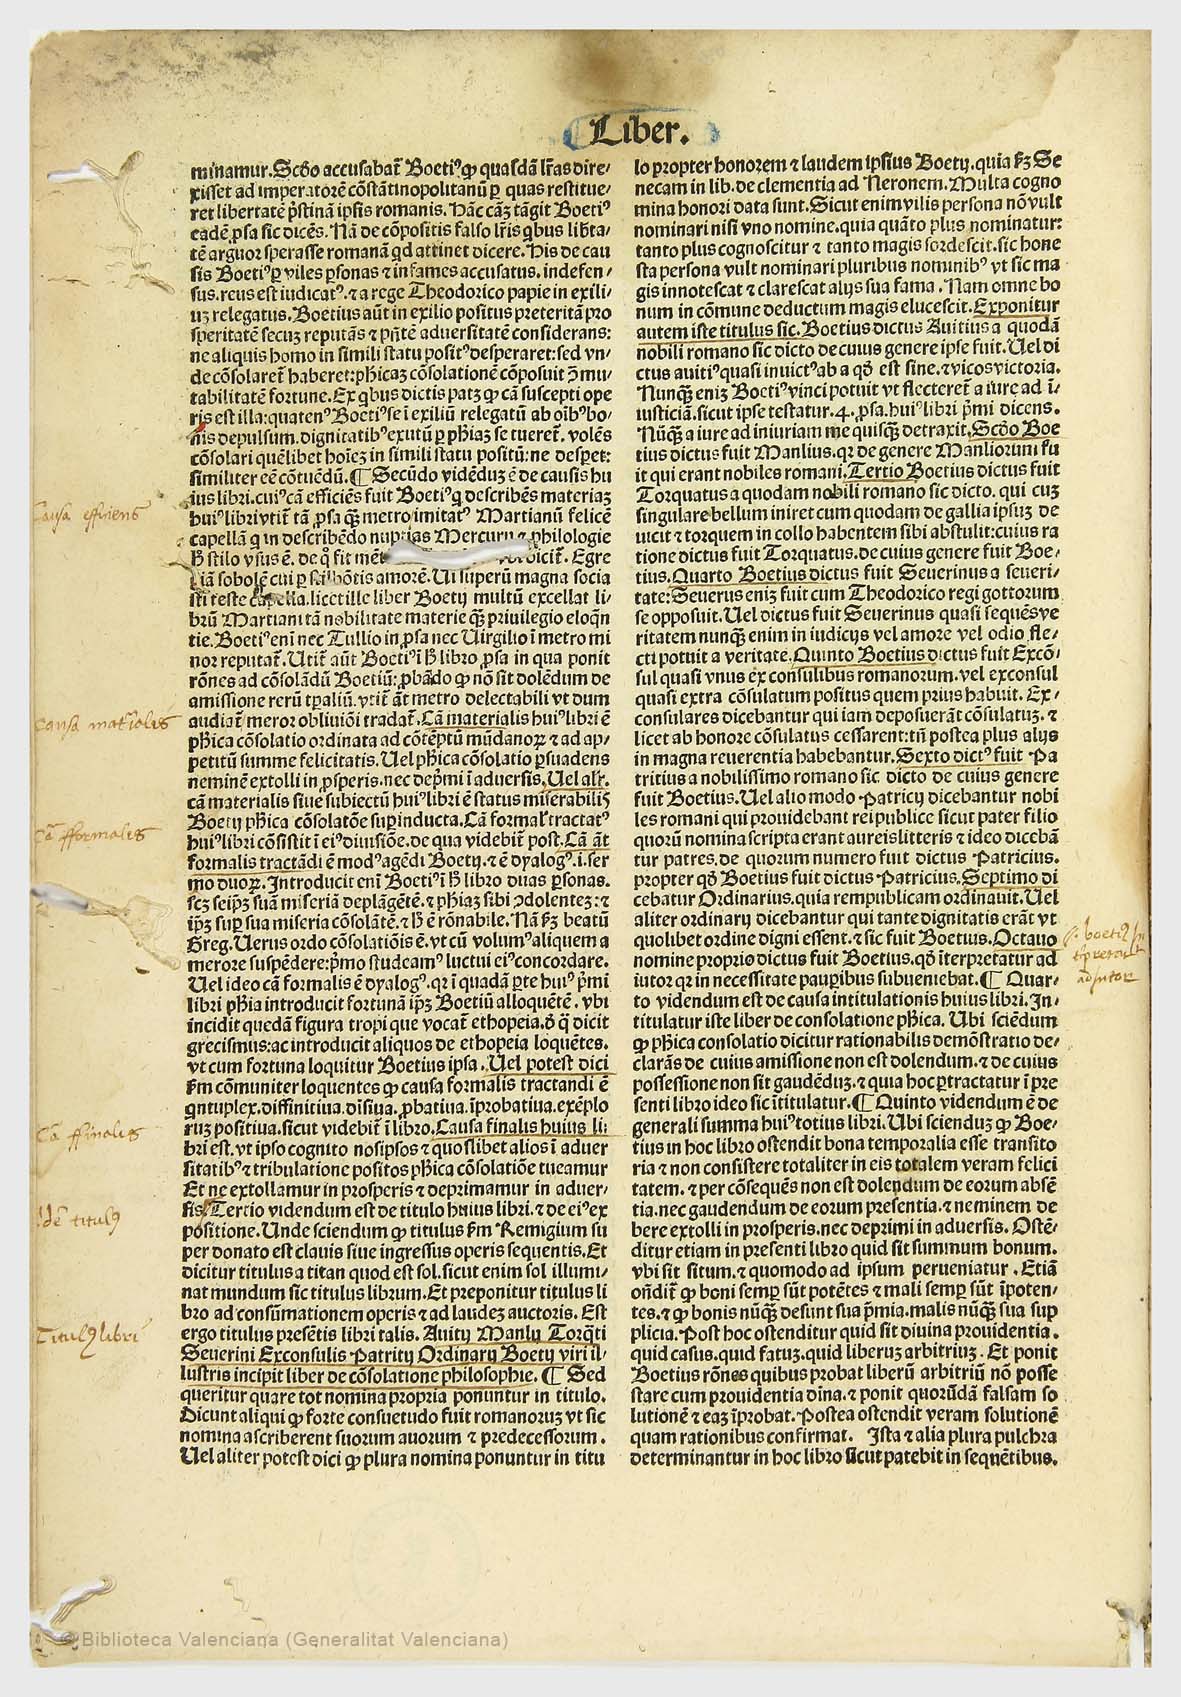 Liber.
minamur. Scd̄o accusabat̄ Boetiꝰ ꝙ quasdā lr̄as dire⸗
xisset ad imperatorē cōstātinopolitanū ꝑ quas restitue⸗
ret libertatē p̄stinā ipsis romanis. Hāc cāꝫ tāgit Boetiꝰ
eadē ꝓsa sic dicēs. Nā de cōpositis falso lr̄is qͥbus lib̄ta⸗
tē arguor sperasse romanā qd̄ attinet dicere. His de cau
sis Boetiꝰ ꝑ viles ꝑsonas ⁊ infames accusatus. indefen⸗
sus. reus est iudicatꝰ. ⁊ a rege Theodorico papie in exili⸗
uꝫ relegatus. Boetius aūt in exilio positus preteritā pro
speritatē secuꝫ reputās ⁊ pn̄tē aduersitatē considerans:
ne aliquis homo in simili statu positꝰ desperaret: sed vn⸗
de cōsolaret̄ haberet: ph̄icaꝫ cōsolationē cōposuit ꝓ mu⸗
tabilitatē fortune. Ex qͥbus dictis patꝫ ꝙ cā suscepti ope
ris est illa: quatenꝰ Boetiꝰ se ī exiliū relegatū ab oībꝰ bo⸗
nis depulsum. dignitatibꝰ exutū ꝑ ph̄iaꝫ se tueret̄. volēs
cōsolari quēlibet hoīeꝫ in simili statu positū: ne despet:
similiter eē cōtuēdū. ¶ Secūdo vidēduꝫ ē de causis hu
ius libri. cuiꝰ cā efficiēs fuit Boetiꝰ qͥ describēs materiaꝫ
huiꝰ libri vtit̄ tā ꝓsa qꝫ metro imitatꝰ Martianū felicē
capellā qͥ in describēdo nuptias Mercurij ⁊ philologie
h̄ stilo vsus ē. de qͦ fit dicit̄. Egre
iā sobolē cui amorē. Vi superū magna socia
sti teste capella. licet ille liber Boetij multū excellat li⸗
brū Martiani tā nobilitate materie qꝫ priuilegio eloqn̄
tie. Boetiꝰ enī nec Tullio in ꝓsa nec Virgilio ī metro mi
nor reputat̄. Utit̄ aūt Boetiꝰ ī h̄ libro ꝓsa in qua ponit
rōnes ad cōsolādū Boetiū: ꝓbādo ꝙ nō sit dolēdum de
amissione rerū tꝑaliū. vtit̄ āt metro delectabili vt dum
audiat̄ meror obliuiōi tradat̄. Cā materialis huiꝰ libri ē
ph̄ica cōsolatio ordinata ad cōtēptū mūdanoꝝ ⁊ ad ap⸗
petitū summe felicitatis. Uel ph̄ica cōsolatio ꝑsuadens
neminē extolli in ꝓsperis. nec dep̄mi ī aduersis. Uel alr̄.
cā materialis siue subiectū huiꝰ libri ē status miserabilis
Boetij ph̄ica cōsolatōe suꝑinducta. Cā formal̄ tractatꝰ
huiꝰ libri cōsistit ī eiꝰ diuisiōe. de qua videbit̄ post. Cā āt
formalis tractādi ē modꝰ agēdi Boetij. ⁊ ē dyalogꝰ. i. ser
mo duoꝝ. Introducit enī Boetiꝰ ī h̄ libro duas ꝑsonas.
scꝫ seip̄ꝫ suā miseriā deplāgētē. ⁊ ph̄iaꝫ sibi ꝯdolenteꝫ: ⁊
ip̄ꝫ suꝑ sua miseria cōsolātē. ⁊ h̄ ē rōnabile. Nā ẜꝫ beatū
Greg. Uerus ordo cōsolatiōis ē. vt cū volumꝰ aliquem a
merore suspēdere: p̄mo studeamꝰ luctui eiꝰ concordare.
Uel ideo cā formalis ē dyalogꝰ. qr ī quadā ꝑte huiꝰ p̄mi
libri ph̄ia introducit fortunā ip̄ꝫ Boetiū alloquētē. vbi
incidit quedā figura tropi que vocat̄ ethopeia. ō q̄ dicit
grecismus: ac introducit aliquos de ethopeia loquētes.
vt cum fortuna loquitur Boetius ipsa. Uel potest dici
ẜm cōmuniter loquentes ꝙ causa formalis tractandi ē
qͥntuplex. diffinitiua. diīsiua. ꝓbatiua. īprobatiua. exēplo
ruꝫ positiua. sicut videbit̄ ī libro. Causa finalis huius li⸗
bri est. vt ipso cognito nosipsos ⁊ quoslibet alios ī aduer
sitatibꝰ ⁊ tribulatione positos ph̄ica cōsolatiōe tueamur
Et ne extollamur in prosperis ⁊ deprimamur in aduer⸗
sis. Tertio videndum est de titulo huius libri. ⁊ de eiꝰ ex
positione. Unde sciendum ꝙ titulus ẜm Remigium su
per donato est clauis siue ingressus operis sequentis. Et
dicitur titulus a titan quod est sol. sicut enim sol illumi⸗
nat mundum sic titulus librum. Et preponitur titulus li
bro ad consūmationem operis ⁊ ad laudeꝫ auctoris. Est
ergo titulus presētis libri talis. Auitij Manlij Torqͣti
Seuerini Exconsulis Patritij Ordinarij Boetij viri il⸗
lustris incipit liber de cōsolatione philosophie. ¶ Sed
queritur quare tot nomina propria ponuntur in titulo.
Dicunt aliqui ꝙ forte consuetudo fuit romanoruꝫ vt sic
nomina ascriberent suorum auorum ⁊ predecessorum.
Uel aliter potest dici ꝙ plura nomina ponuntur in titu
lo propter honorem ⁊ laudem ipsius Boetij. quia ẜꝫ Se
necam in lib. de clementia ad Neronem. Multa cogno
mina honori data sunt. Sicut enim vilis persona nō vult
nominari nisi vno nomine. quia quāto plus nominatur:
tanto plus cognoscitur ⁊ tanto magis sordescit. sic hone
sta persona vult nominari pluribus nominibꝰ vt sic ma
gis innotescat ⁊ clarescat alijs sua fama. Nam omne bo
num in cōmune deductum magis elucescit. Exponitur
autem iste titulus sic. Boetius dictus Auitius a quodā
nobili romano sic dicto de cuius genere ipse fuit. Uel di
ctus auitiꝰ quasi inuictꝰ ab a qd̄ est sine. ⁊ vicos victoria.
Nunqꝫ eniꝫ Boetiꝰ vinci potuit vt flecteret̄ a iure ad ī⸗
iusticiā. sicut ipse testatur. 4. ꝓsa. huiꝰ libri p̄mi dicens.
Nūqꝫ a iure ad iniuriam me quisqꝫ detraxit. Scd̄o Boe
tius dictus fuit Manlius. qr de genere Manliorum fu
it qui erant nobiles romani. Tertio Boetius dictus fuit
Torquatus a quodam nobili romano sic dicto. qui cuꝫ
singulare bellum iniret cum quodam de gallia ipsuꝫ de
uicit ⁊ torquem in collo habentem sibi abstulit: cuius ra
tione dictus fuit Torquatus. de cuius genere fuit Boe⸗
tius. Quarto Boetius dictus fuit Seuerinus a seueri⸗
tate: Seuerus eniꝫ fuit cum Theodorico regi gottorum
se opposuit. Uel dictus fuit Seuerinus quasi sequēs ve
ritatem nunqꝫ enim in iudicijs vel amore vel odio fle⸗
cti potuit a veritate. Quinto Boetius dictus fuit Excō⸗
sul quasi vnus ex consulibus romanorum. vel exconsul
quasi extra cōsulatum positus quem prius habuit. Ex⸗
consulares dicebantur qui iam deposuerāt cōsulatuꝫ. ⁊
licet ab honore cōsulatus cessarent: tn̄ postea plus alijs
in magna reuerentia habebantur. Sexto dictꝰ fuit Pa
tritius a nobilissimo romano sic dicto de cuius genere
fuit Boetius. Uel alio modo Patricij dicebantur nobi
les romani qui prouidebant rei publice sicut pater filio
quorū nomina scripta erant aureis litteris ⁊ ideo dicebā
tur patres. de quorum numero fuit dictus Patricius.
propter qd̄ Boetius fuit dictus Patricius. Septimo di
cebatur Ordinarius. quia rempublicam ordinauit. Uel
aliter ordinarij dicebantur qui tante dignitatis erāt vt
quolibet ordine digni essent. ⁊ sic fuit Boetius. Octauo
nomine proprio dictus fuit Boetius. qd̄ īterpretatur ad
iutor qr in necessitate pauꝑibus subueniebat. ¶ Quar⸗
to videndum est de causa intitulationis huius libri. In⸗
titulatur iste liber de consolatione ph̄ica. Ubi sciēdum
ꝙ phica consolatio dicitur rationabilis demōstratio de⸗
clarās de cuius amissione non est dolendum. ⁊ de cuius
possessione non sit gaudēduꝫ. ⁊ quia hoc ꝑtractatur ī pre
senti libro ideo sic ītitulatur. ¶ Quinto videndum ē de
generali summa huiꝰ totius libri. Ubi scienduꝫ ꝙ Boe⸗
tius in hoc libro ostendit bona temporalia esse transito
ria ⁊ non consistere totaliter in eis totalem veram felici
tatem. ⁊ per cōsequēs non est dolendum de eorum absē
tia. nec gaudendum de eorum presentia. ⁊ neminem de
bere extolli in prosperis. nec deprimi in aduersis. Ostē⸗
ditur etiam in presenti libro quid sit summum bonum.
vbi sit situm. ⁊ quomodo ad ipsum perueniatur. Etiā
on̄dit̄ ꝙ boni semꝑ sūt potētes ⁊ mali semꝑ sūt īpoten⸗
tes. ⁊ ꝙ bonis nūqꝫ desunt sua p̄mia. malis nūqꝫ sua sup
plicia. Post hoc ostenditur quid sit diuina prouidentia.
quid casus. quid fatuꝫ. quid liberuꝫ arbitriuꝫ. Et ponit
Boetius rōnes quibus probat liberū arbitriū nō posse
stare cum prouidentia diīna. ⁊ ponit quorūdā falsam so
lutionē ⁊ eaꝫ īprobat. Postea ostendit veram solutionē
quam rationibus confirmat. Ista ⁊ alia plura pulchra
determinantur in hoc libro sicut patebit in sequētibus.
Causa efficiens
Causa mat̄ialis
Cā fformalis
Cā ffinalis
Titulꝰ libri
boetiꝰ
adiutor
© Biblioteca Valenciana (Generalitat Valenciana)